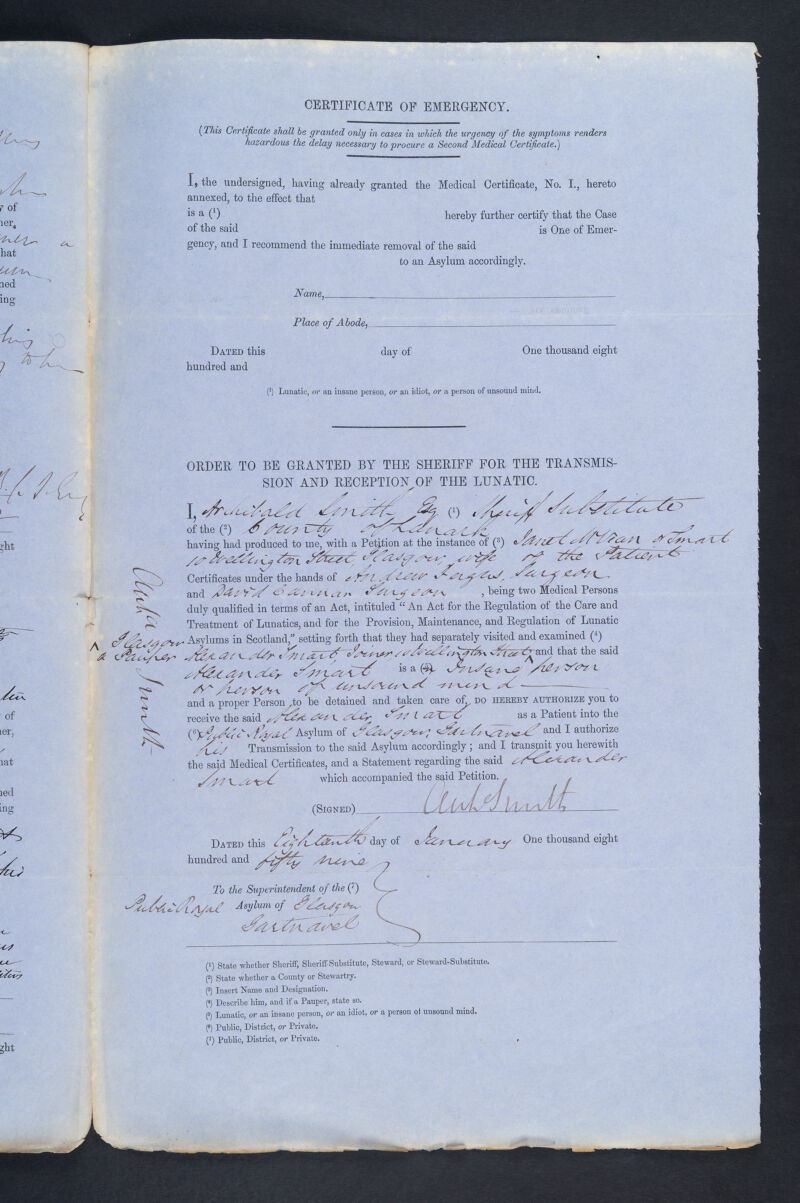 CERTIFICATE OF EMERGENCY.
(This Certificate shall be granted only in cases in which the urgency of the symptoms renders
hazardous the delay necessary to procure a Second Medical Certificate.)
I, the undersigned, having already granted the Medical Certificate, No. I., hereto
annexed, to the effect that
is a (¹) hereby further certify that the Case
of the said is One of Emer-
gency, and I recommend the immediate removal of the said
to an Asylum accordingly.
Name,
Place of Abode,
DATED this day of One thousand eight
hundred and
(¹) Lunatic, or an insane person, or an idiot, or a person of unsound mind.
ORDER TO BE GRANTED BY THE SHERIFF FOR THE TRANSMIS-
SION AND RECEPTION OF THE LUNATIC.
I, Archibald Smith Esq (¹) Sheriff Substitute
of the (²) County of Lanark
having had produced to me, with a Petition at the instance of (³) Janet McVean or Smart
10 Wellington Street, Glasgow, wife of the Patient
Certificates under the hands of Andrew Fergus, Surgeon
and David Cannan Surgeon, being two Medical Persons
duly qualified in terms of an Act, intituled “An Act for the Regulation of the Care and
Treatment of Lunatics, and for the Provision, Maintenance, and Regulation of Lunatic
Asylums in Scotland,” setting forth that they had separately visited and examined (⁴)
Alexander Smart, Joiner 10 Wellington Street, and that the said
^ Glasgow
a Pauper
Alexander Smart is a (⁵) Insane person
or person of unsound mind
and a proper Person to be detained and taken care of, DO HEREBY AUTHORIZE you to
receive the said Alexander Smart as a Patient into the
(⁶) Public Royal Asylum of Glasgow, Gartnavel and I authorize
his Transmission to the said Asylum accordingly; and I transmit you herewith
the said Medical Certificates, and a Statement regarding the said Alexander
Smart which accompanied the said Petition.
(SIGNED) Archd Smith
Archd Smith
DATED this Eighteenth day of January One thousand eight
hundred and fifty nine
To the Superintendent of the (⁷)
Public Royal Asylum of Glasgow
Gartnavel
(¹) State whether Sheriff, Sheriff-Substitute, Steward, or Steward-Substitute.
(²) State whether a County or Stewartry.
(³) Insert Name and Designation.
(⁴) Describe him, and if a Pauper, state so.
(⁵) Lunatic, or an insane person, or an idiot, or a person of unsound mind.
(⁶) Public, District, or Private.
(⁷) Public, District, or Private.